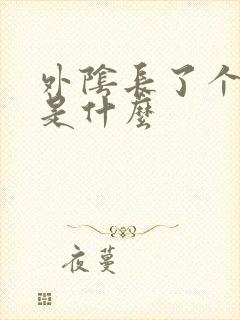 外陰長了个
是什麼
夜蔓